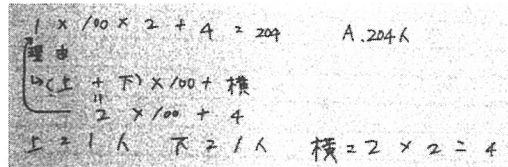 1 × 100 × 2 + 4 = 204 A. 204人
理由
↳(上 + 下) × 100 + 横
=
2 × 100 + 4
上 = 1人 下 = 1人 横 = 2 × 2 = 4